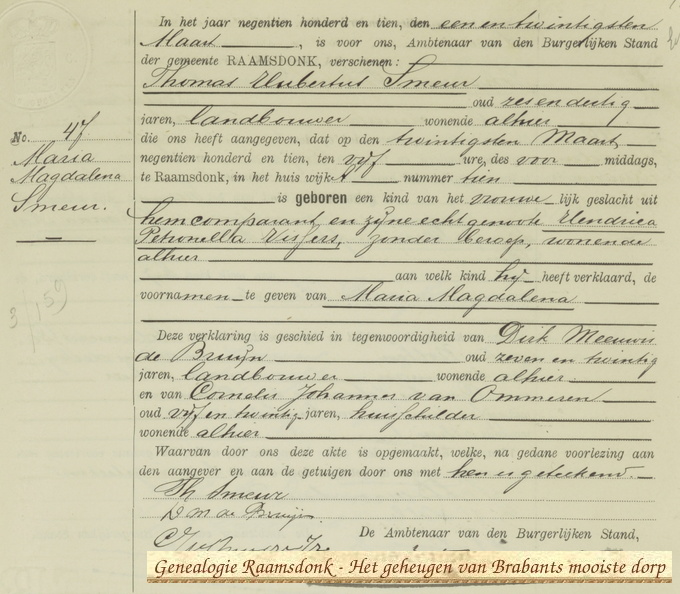 In het jaar negentien honderd en tien, den een en twintigsten
Maart, is voor ons, Ambtenaar van den Burgerlijken Stand
der gemeente RAAMSDONK, verschenen:
Thomas Hubertus Smeur
oud zes en dertig
jaren, landbouwer wonende alhier
die ons heeft aangegeven, dat op den twintigsten Maart
negentien honderd en tien, ten vijf ure, des voor middags,
te Raamsdonk, in het huis wijk A nummer tien
is geboren een kind van het vrouwelijk geslacht uit
hem comparant en zijne echtgenoote Hendrica
Petronella Vissers, zonder beroep, wonende
alhier
aan welk kind hij heeft verklaard, de
voornamen te geven van Maria Magdalena
Deze verklaring is geschied in tegenwoordigheid van Dirk Meeuwis
de Bruijn oud zeven en twintig
jaren, landbouwer wonende alhier
en van Cornelis Johannes van Ommeren
oud vijf en twintig jaren, huisschilder
wonende alhier
Waarvan door ons deze akte is opgemaakt, welke, na gedane voorlezing aan
den aangever en aan de getuigen door ons met hen is geteekend.
Th Smeur
D M de Bruijn
De Ambtenaar van den Burgerlijken Stand,
No. 47
Maria
Magdalena
Smeur.
3/159
Genealogie Raamsdonk - Het geheugen van Brabants mooiste dorp